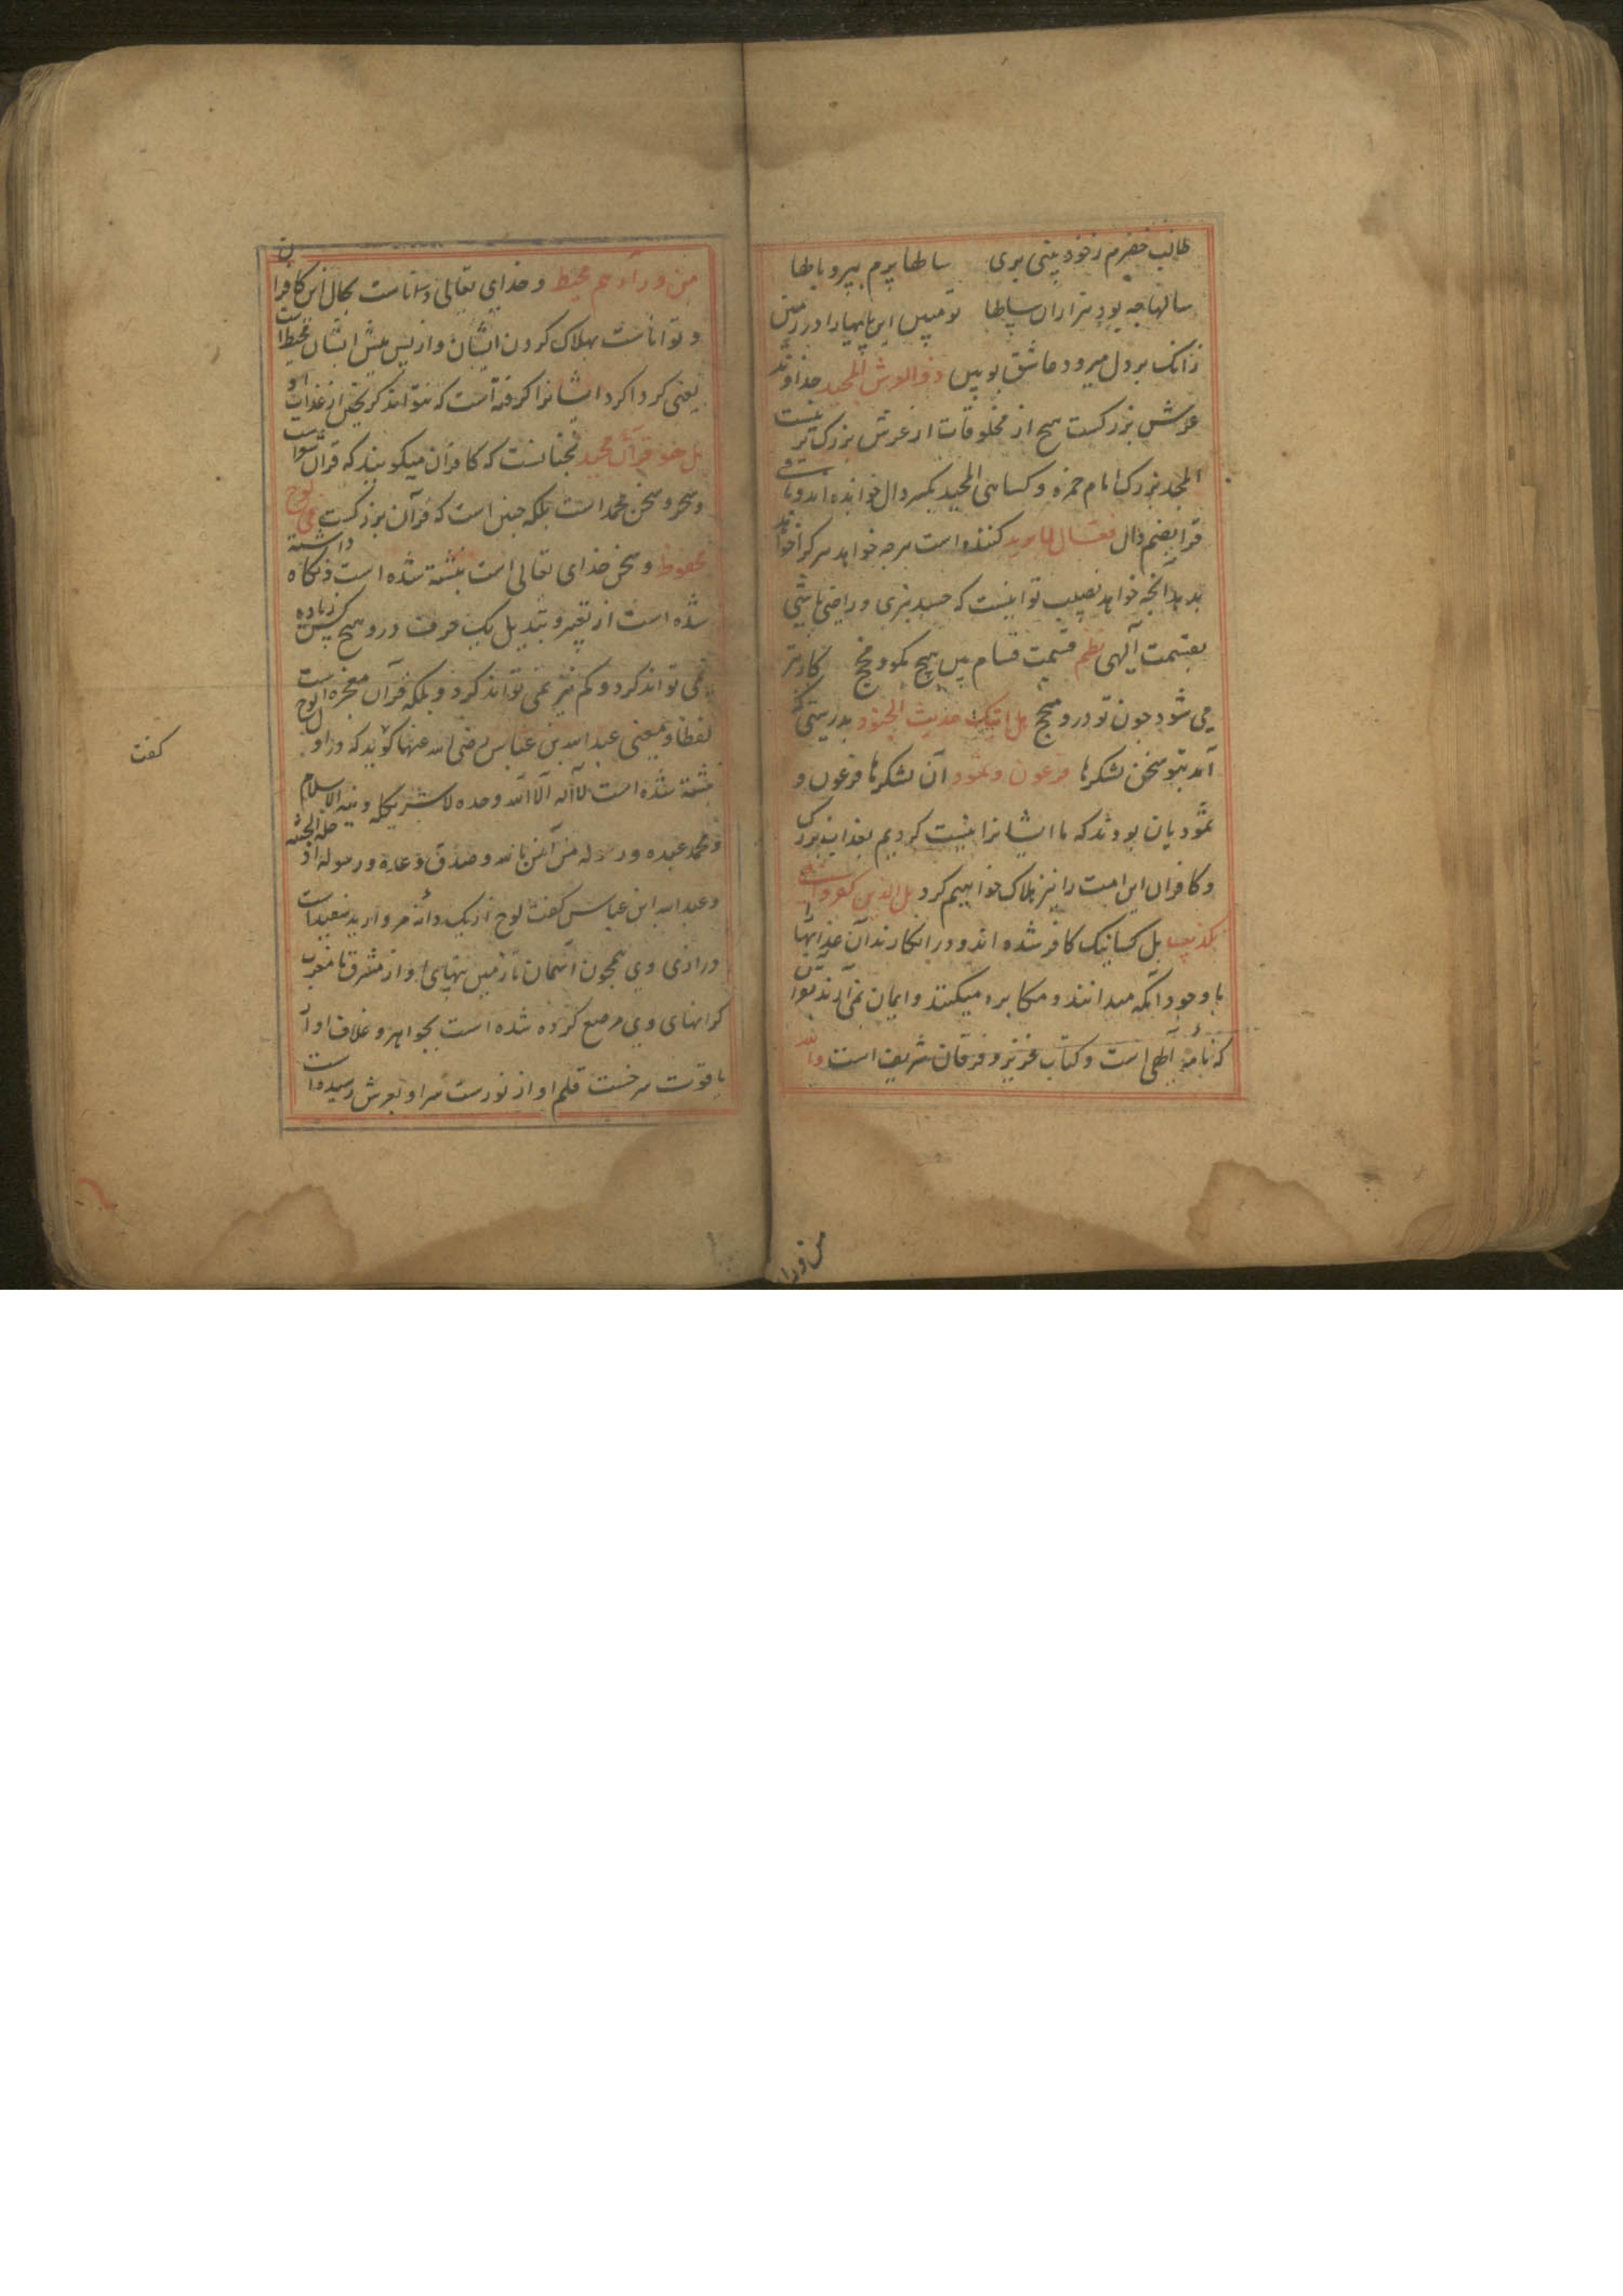 طالب خضرم زخود بینی بری ساطها پرم بپر و باطها
سالها چه بود هزاران ساطها تو مبین این پایها را در زمین
زانک بر دل میرود عاشق بو بین ذو العرش المجید خداوند
عرش بزرکست هیچ از مخلوقات از عرش بزرک تر نیست
المجید بزرک امام حمزه و کسائی المجید بکسر دال خوانده اند و باقی
قرا بضم دال فعال لما یرید کننده است هرچه خواهد هر کرا خواهد
بدهد آنچه خواهد نصیب تو اینست که حسد نبری و راضی باشی
بقسمت آلهی نظم قسمت قسام بین هیچ مکو و مخج کار بتر
می شود چون تو درو مخج هل اتیک حدیث الجنود بدرستی که
آمد بتو سخن لشکرها فرعون و ثمود آن لشکرها فرعون و
ثمودیان بودند که ما ایشانرا نیست کردیم بعذاب بزرک
و کافران این امت را نیز هلاک خواهیم کرد بل الذین کفروا فی
تکذیب بل کسانیک کافر شده اند و در انکارند آن عذابها را
با وجود آنکه میدانند و مکابره میکنند و ایمان نمی آرند بقرآن
که نامه آلهی است و کتاب عزیز و فرقان شریف است والله
من ورا
من ورآئهم محیط و خدای تعالی داناست بحال این کافران
و تواناست بهلاک کردن ایشان و از پس پیش ایشان محیط است
یعنی کرداکرد ایشانرا کرفته است که نتوانند کریختن از عذاب او
بل هو قرآن مجید نچنانست که کافران میکویند که قرآن شعر است
و سحر و سخن محمد است بلکه چنین است که قرآن بزرکست فی لوح
محفوظ و سخن خدای تعالی است نبشته شده است و نکاه داشته
شده است از تغییر و تبدیل یک حرف درو هیچ کس زیاده
نمی تواند کرد و کم نیز نمی تواند کرد و بلکه قرآن معجزه است
لفظا و معنی عبدالله بن عباس رضی الله عنهما کوید که در اول لوح
نبشته شده است لا اله الا الله وحده لا شریک له دینه الاسلام
و محمد عبده و رسوله من آمن بالله و صدق وعده و رسوله ادخله الجنة
و عبدالله ابن عباس کفت لوح از یک دانه مروارید سفید است
درازی وی همچون آسمان تا زمین پهنای او از مشرق تا مغرب
کرانهای وی مرصع کرده شده است بجواهر و غلاف او از
یاقوت سرخست قلم او از نورست سر او بعرش رسیده است
کفت